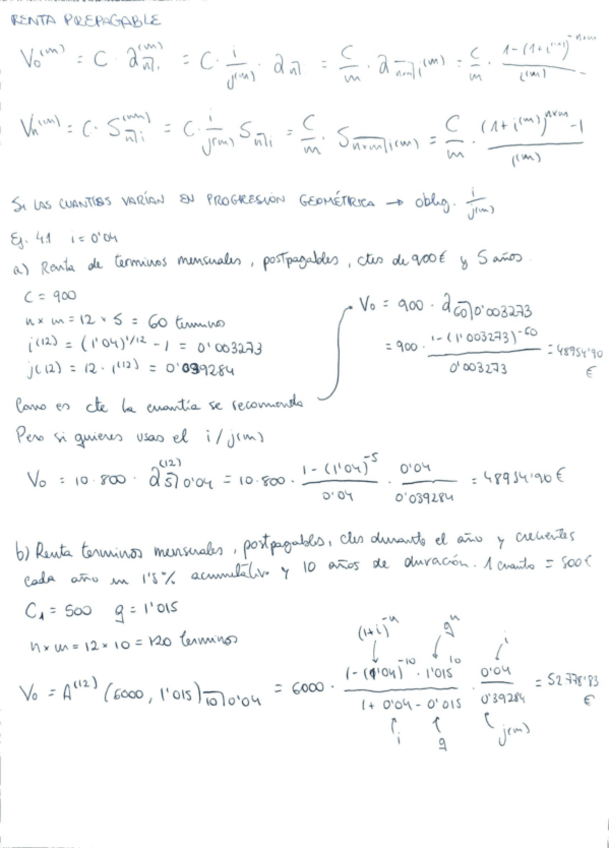 RENTA PREPAGABLE
V₀⁽ᵐ⁾ = C · a n⌉i ⁽ᵐ⁾ = C · i/j(m) · a n⌉ = C/m · a n×m⌉i⁽ᵐ⁾ = C/m · 1-(1+i⁽ᵐ⁾)^-n×m / i⁽ᵐ⁾
Vn⁽ᵐ⁾ = C · S n⌉i ⁽ᵐ⁾ = C · i/j(m) S n⌉i = C/m · S n×m⌉i(m) = C/m · (1+i⁽ᵐ⁾)^n×m -1 / i(m)
Si LAS CUANTÍAS VARÍAN EN PROGRESIÓN GEOMÉTRICA → oblig. i/j(m)
Ej. 41 i = 0'04
a) Renta de terminos mensuales, postpagables, ctes de 900€ y 5 años.
C = 900
n × m = 12 × 5 = 60 terminos
i⁽¹²⁾ = (1'04)^1/12 - 1 = 0'003273
j(12) = 12 · i⁽¹²⁾ = 0'039284
V₀ = 900 · a 60⌉0'003273
= 900 · 1-(1'003273)^-60 / 0'003273 = 48954'90 €
Como es cte la cuantía se recomienda
Pero si quieres usas el i/j(m)
V₀ = 10.800 · a 5⌉0'04 ⁽¹²⁾ = 10.800 · 1-(1'04)^-5 / 0'04 · 0'04 / 0'039284 = 48954'90 €
b) Renta terminos mensuales, postpagables, ctes durante el año y crecientes
cada año un 1'5% acumulativo y 10 años de duración. 1 cuantía = 500€
C₁ = 500 q = 1'015
n × m = 12 × 10 = 120 terminos
(1+i)^-n qⁿ i
V₀ = A⁽¹²⁾ (6000, 1'015) 10⌉0'04 = 6000 · 1-(1'04)^-10 · 1'015^10 / 1+0'04-0'015 · 0'04 / 0'39284 = 52778'83 €
i q j(m)